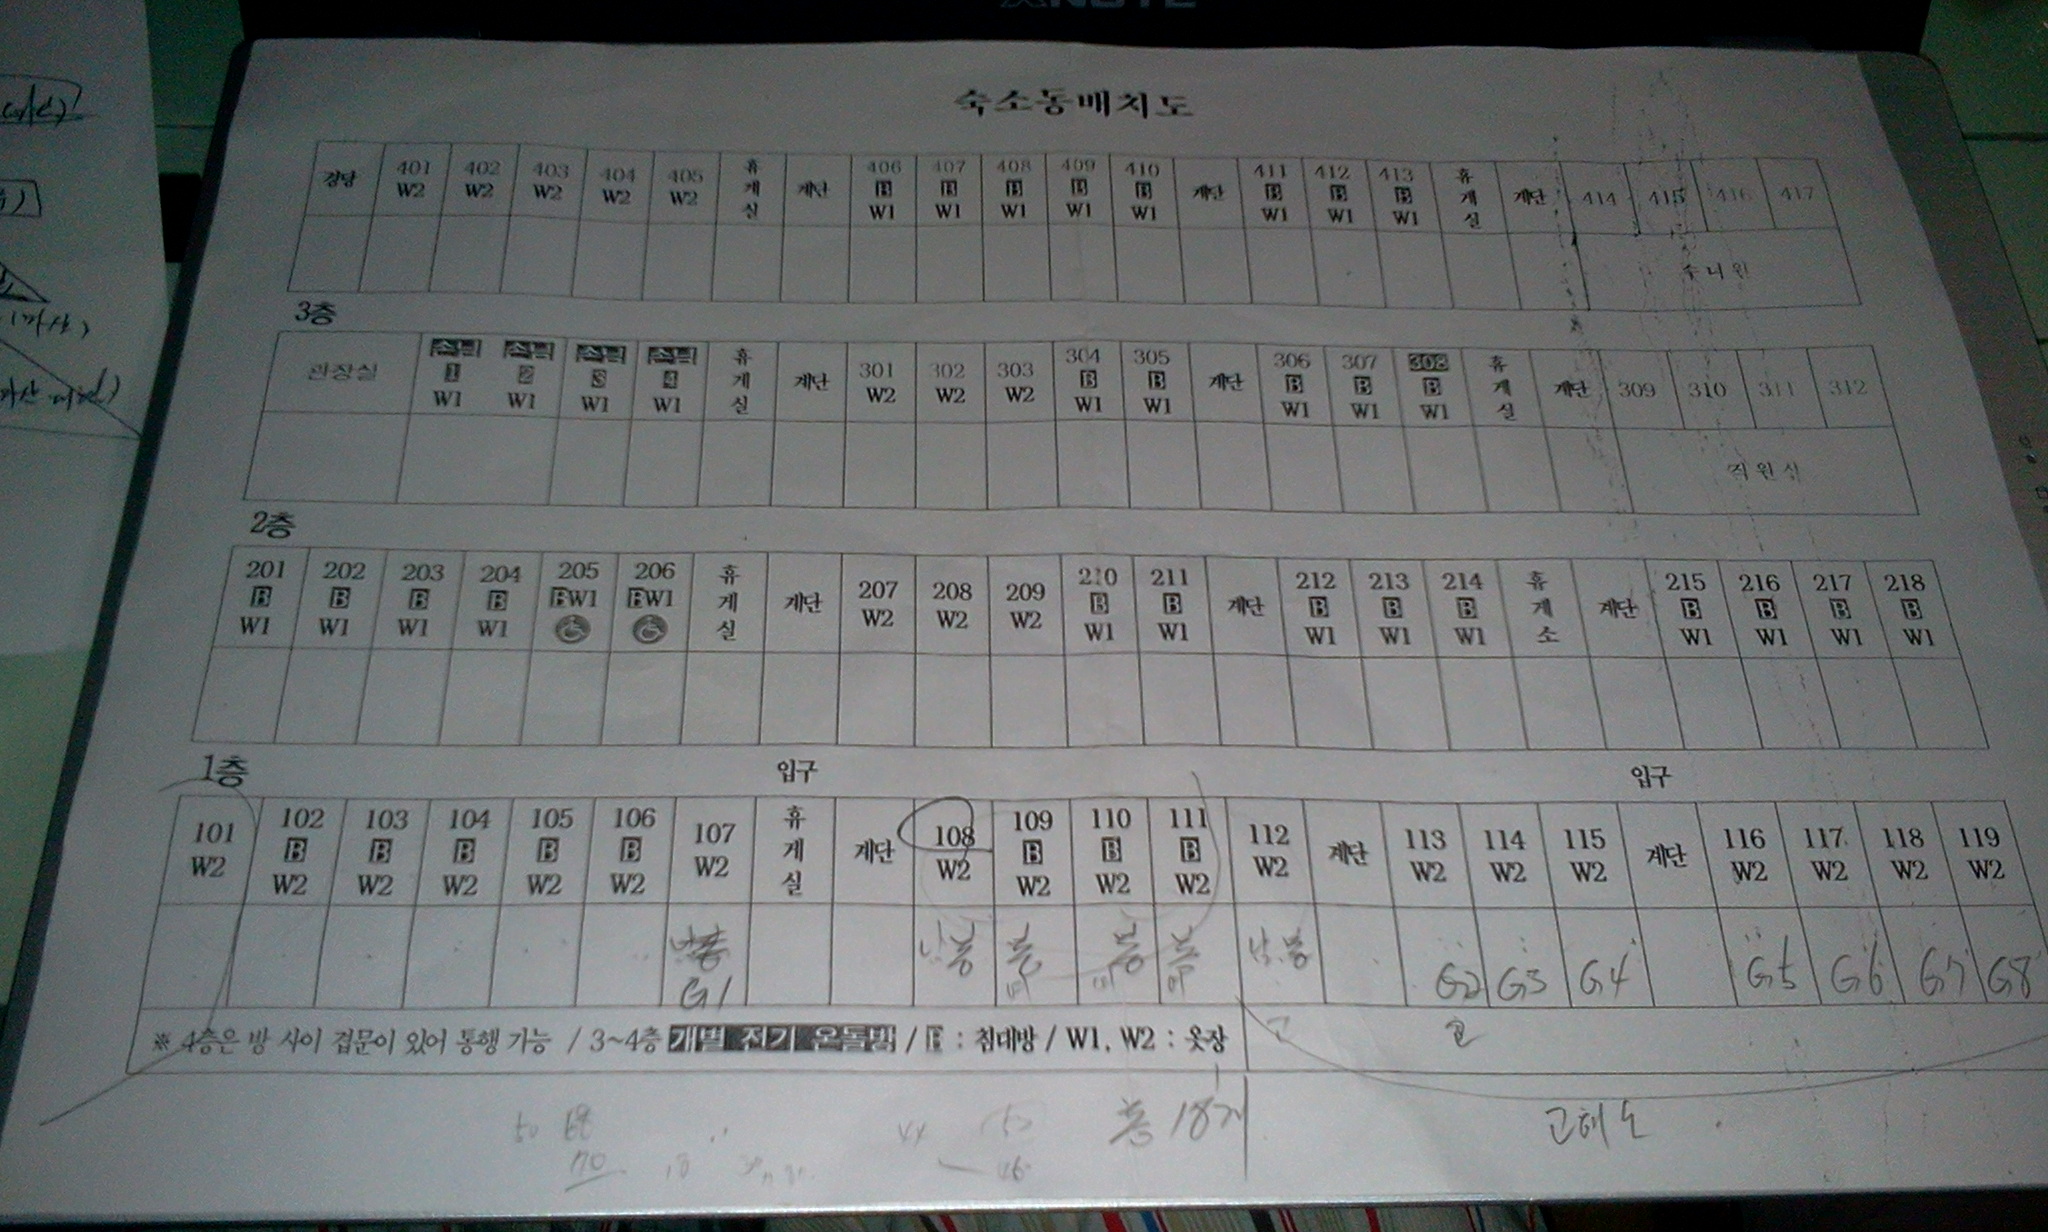 숙소동배치도
경당 401 W2 402 W2 403 W2 404 W2 405 W2 휴게실 계단 406 B W1 407 B W1 408 B W1 409 B W1 410 B W1 계단 411 B W1 412 B W1 413 B W1 휴게실 계단 414 415 416 417
수녀원
3층
관장실 손님 1 W1 손님 2 W1 손님 3 W1 손님 4 W1 휴게실 계단 301 W2 302 W2 303 W2 304 B W1 305 B W1 계단 306 B W1 307 B W1 308 B W1 휴게실 계단 309 310 311 312
직원실
2층
201 B W1 202 B W1 203 B W1 204 B W1 205 BW1 206 BW1 휴게실 계단 207 W2 208 W2 209 W2 210 B W1 211 B W1 계단 212 B W1 213 B W1 214 B W1 휴게소 계단 215 B W1 216 B W1 217 B W1 218 B W1
1층 입구 입구
101 W2 102 B W2 103 B W2 104 B W2 105 B W2 106 B W2 107 W2 휴게실 계단 108 W2 109 B W2 110 B W2 111 B W2 112 W2 계단 113 W2 114 W2 115 W2 계단 116 W2 117 W2 118 W2 119 W2
G1 G2 G3 G4 G5 G6 G7 G8
※ 4층은 방 사이 겹문이 있어 통행 가능 / 3~4층 개별 전기 온돌방 / B : 침대방 / W1, W2 : 옷장
18개
70